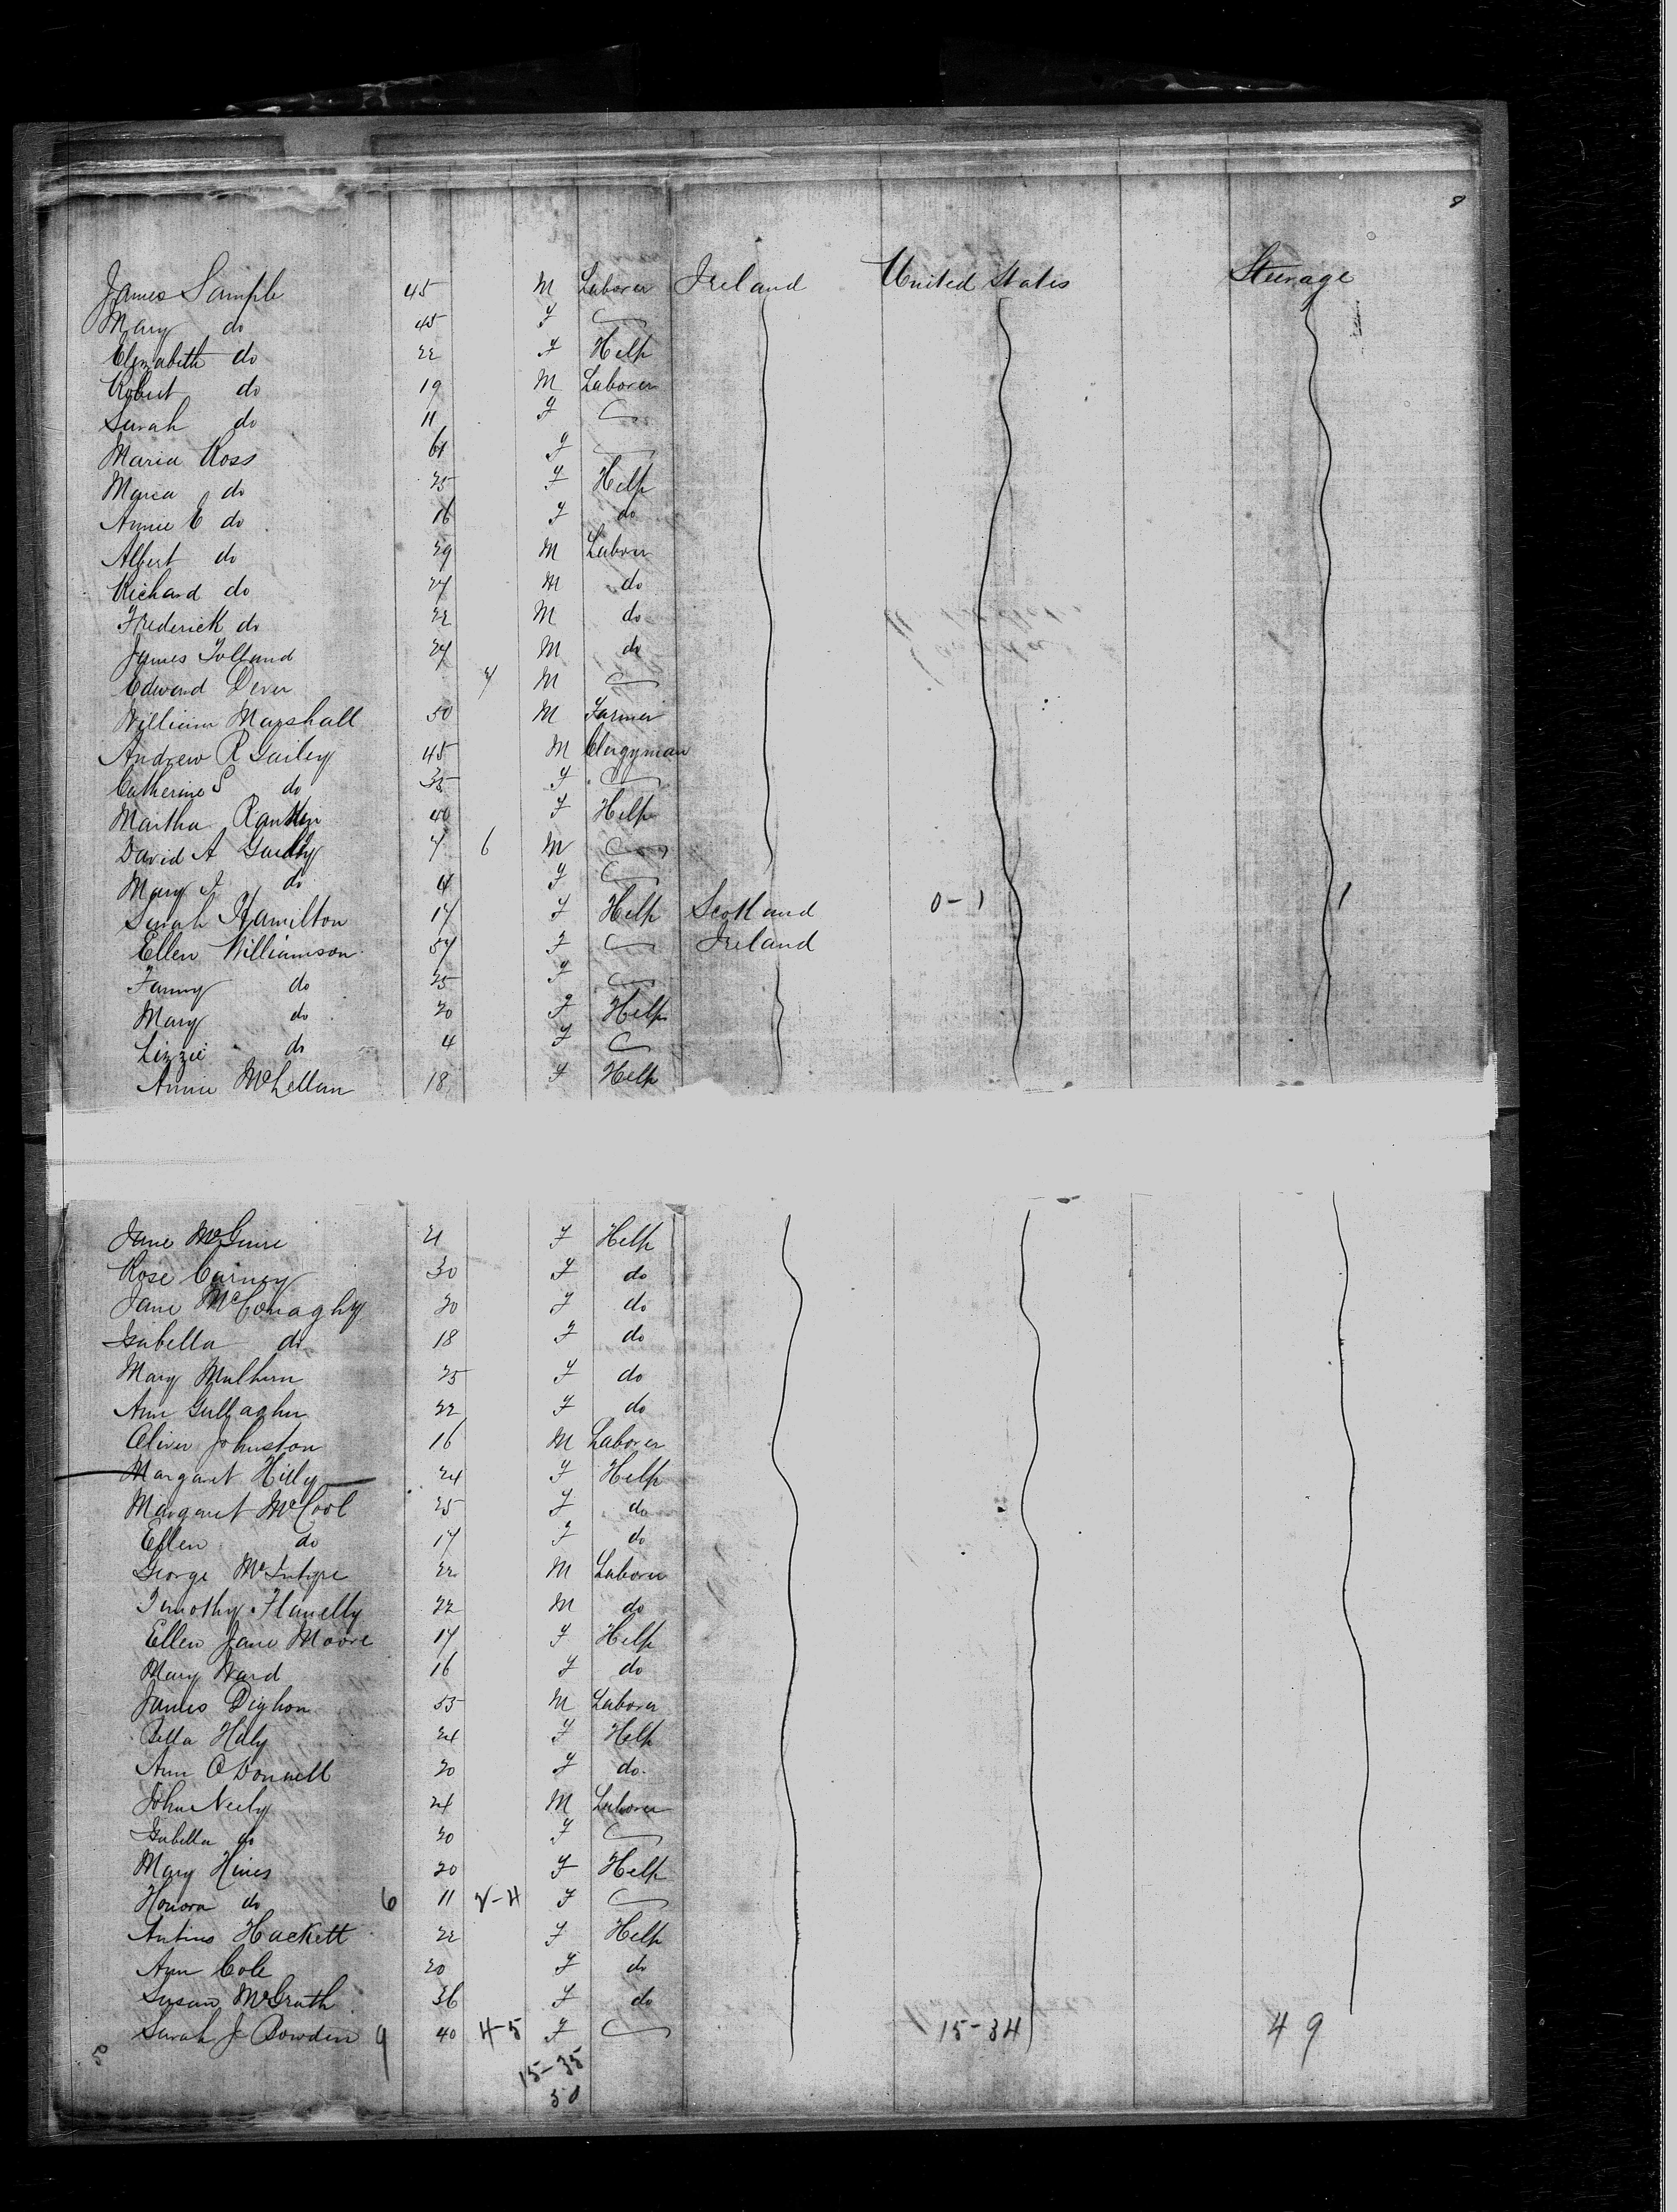 8
James Sample 45 M Laborer Ireland United States Steerage
Mary do 45 F
Elizabeth do 22 F Help
Robert do 19 M Laborer
Sarah do 11 F
Maria Ross 64 F
Maria do 25 F Help
Annie E do 16 F do
Albert do 29 M Labor
Richard do 27 M do
Frederick do 22 M do
James Tolland 24 M do
Edward Dever M
William Marshall 50 M Farmer
Andrew R Gailey 45 M Clergyman
Catherine S do 38 F
Martha Rankin 40 F Help
David A Gailey 7 6 M
Mary J do 4 F
Sarah Hamilton 17 F Help Scotland 0-1 1
Ellen Williamson 57 F Ireland
Fanny do 25 F
Mary do 20 F Help
Lizzie do 4 F
Annie McLellan 18 F Help
Jane McGuire 21 F Help
Rose Carney 30 F do
Jane McConaghy 20 F do
Isabella do 18 F do
Mary Mulhern 25 F do
Ann Gallagher 22 F do
Oliver Johnston 16 M Laborer
Margaret Hilly 24 F Help
Margaret McCool 25 F do
Ellen do 17 F do
George McIntyre 22 M Laborer
Timothy Flanelly 22 M do
Ellen Jane Moore 17 F Help
Mary Ward 16 F do
James Dighon 53 M Laborer
Bella Haly 24 F Help
Ann O'Donnell 20 F do
John Neely 24 M Laborer
Isabella do 20 F
Mary Hines 20 F Help
Honora do 6 11 2-4 F
Hackett 22 F Help
Ann Cole 20 F do
Susan McGrath 36 F do
Sarah J Bowden 9 40 4-5 F 15-34 49
50 15-35
50